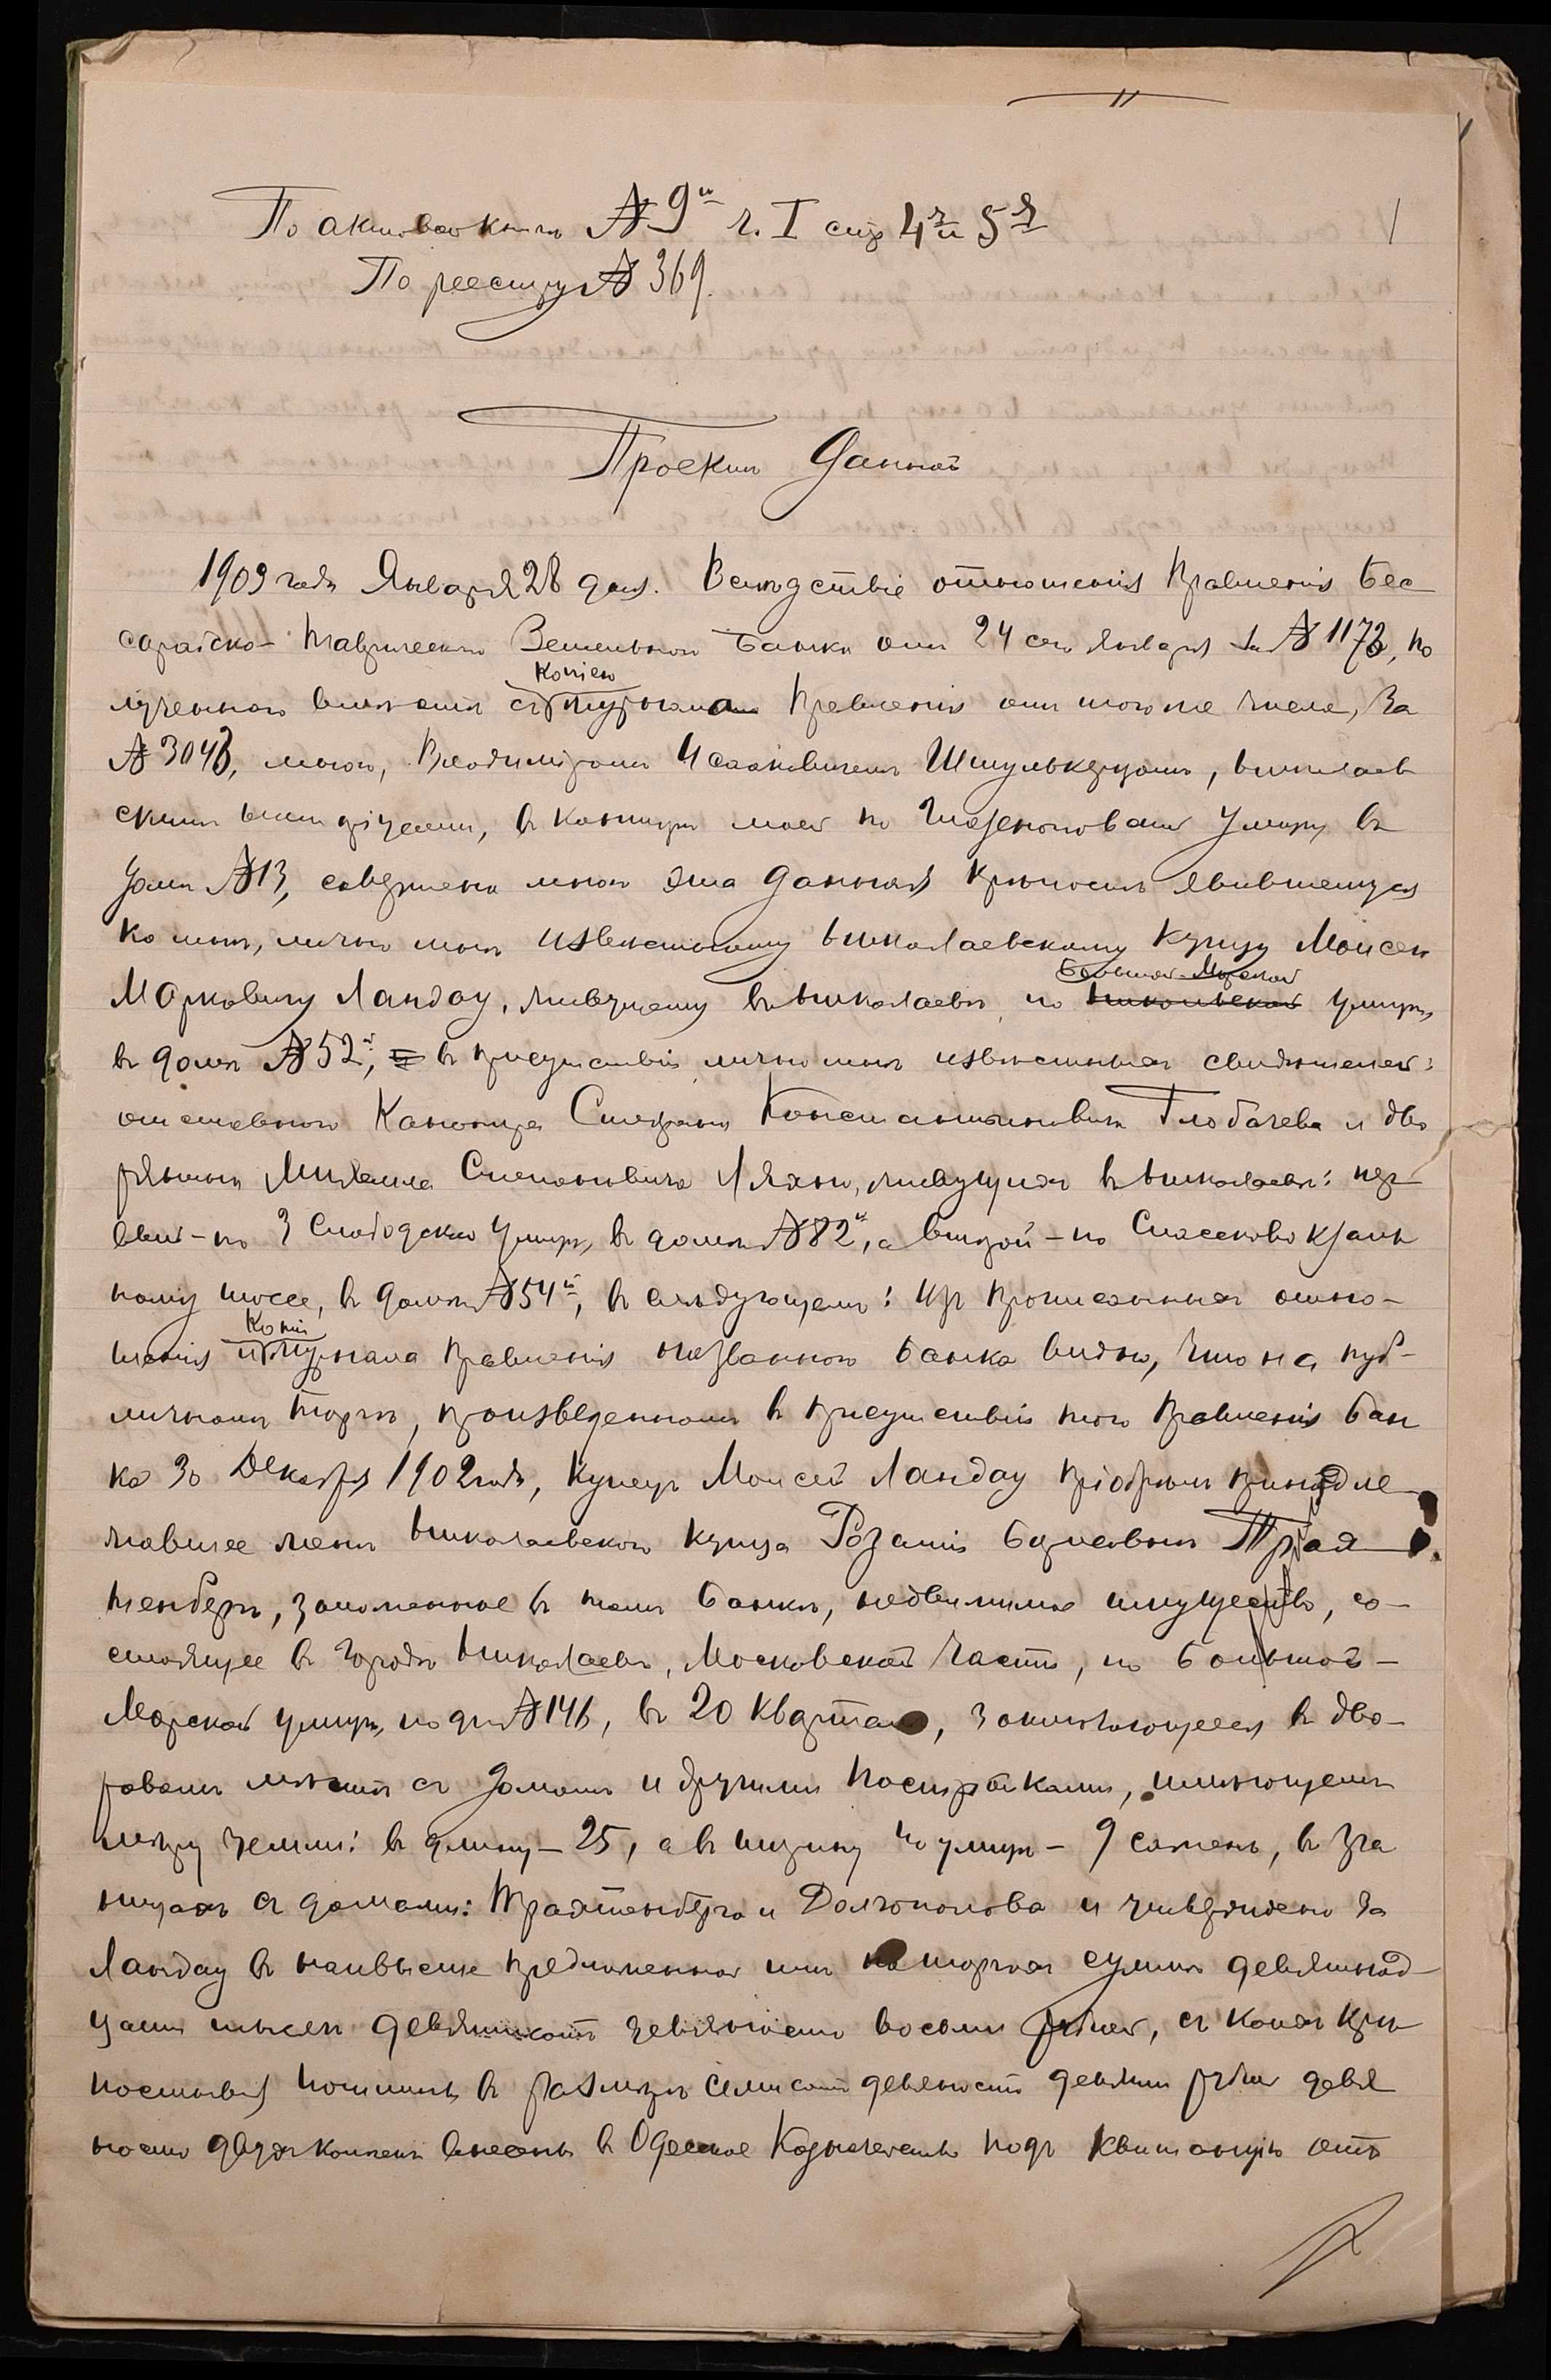 1
По актовой книгѣ № 9й ч. I стр 4я и 5я
По реестру № 369.
Проектъ Данной
1903 года Января 28 дня. Вслѣдствіе отношенія Правленія Бес
сарабско-Таврическаго Земельнаго банка отъ 24 сего Января за № 1173, по
лученнаго вмѣстѣ съ копіею журнала Правленія отъ того же числа, за
№ 3043, мною, Владиміромъ Исааковичемъ Шмулькерцомъ, николаев
скимъ нотаріусомъ, въ конторѣ моей по улицѣ въ
домѣ № 13, совершена мною эта данная крѣпость явившемуся
ко мнѣ, лично мнѣ извѣстному николаевскому купцу Моисею
Марковичу Ландау, живущему въ Николаевѣ, по Большой-Морской улицѣ,
въ домѣ № 52й, въ присутствіи лично мнѣ извѣстныхъ свидѣтелей:
отставного Стефана Константиновича Глобачева и дво
рянина Михаила Степановича Ляхно, живущихъ въ Николаевѣ: пер
вый - по 3 Слободской улицѣ, въ домѣ № 82й, а второй - по Спасскому
ному шоссе, въ домѣ № 54й, въ слѣдующемъ: изъ прописанныхъ отно-
шенія и копіи журнала Правленія названнаго банка видно, что на пуб-
личномъ торгѣ, произведенномъ въ присутствіи того Правленія бан
ка 30 Декабря 1902 года, купецъ Моисей Ландау пріобрѣлъ принадле
жавшее женѣ николаевскаго купца Розаліи Трах
тенбергъ, заложенное въ томъ банкѣ, недвижимое имущество, со-
стоящее въ городѣ Николаевѣ, Московской части, по Большой-
Морской улицѣ, подъ № 146, въ 20 кварталѣ, заключающееся въ дво-
ровомъ мѣстѣ съ домомъ и другими постройками, имѣющемъ
мѣру земли: въ длину - 25, а въ ширину по улицѣ - 9 сажень, въ гра
ницахъ съ домами: Трахтенберга и Долгополова и утверждено за
Ландау въ наивысше предложенной имъ на торгахъ суммѣ девятнад-
цати тысячъ девятисотъ девяносто восьми рублей, съ коихъ крѣ
постныя пошлины въ размѣрѣ семисотъ девяносто девяти рублей девя
носто двухъ копѣекъ внесены въ Одесское Казначейство подъ квитанцію отъ